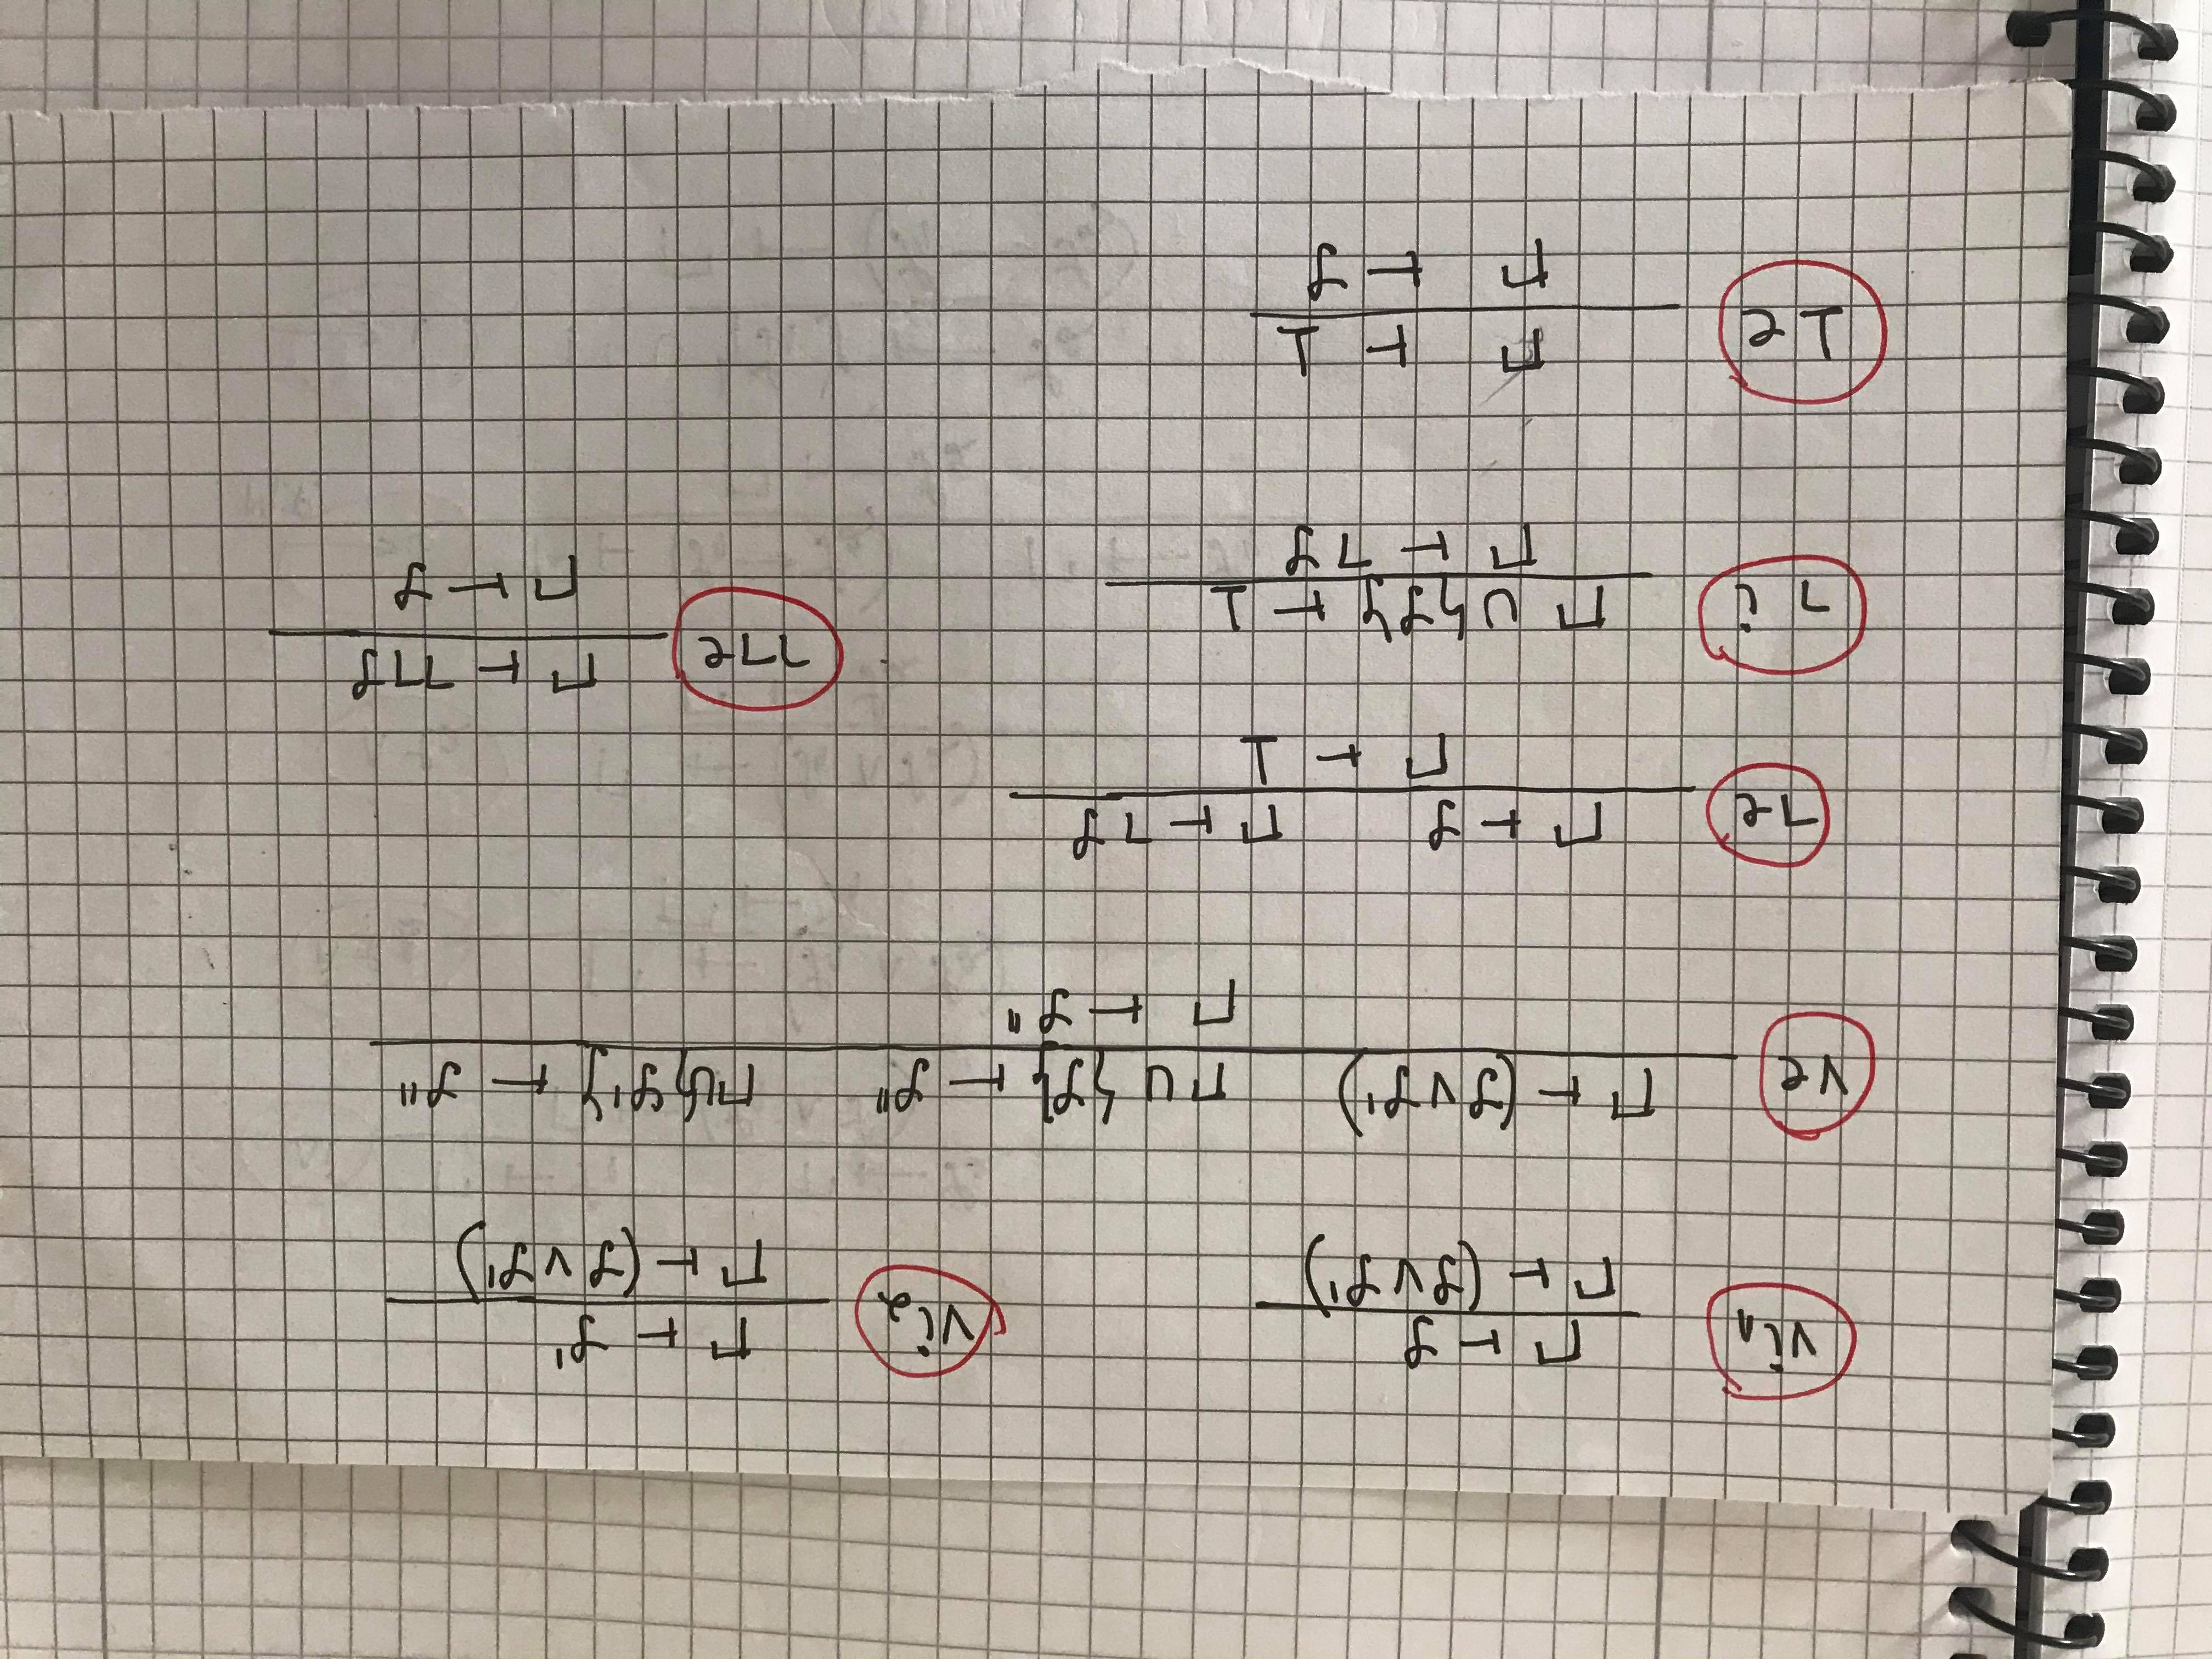 ∨i₁ Γ ⊢ φ ∨i₂ Γ ⊢ φ'
Γ ⊢ (φ ∨ φ') Γ ⊢ (φ ∨ φ')
∨e Γ ⊢ (φ ∨ φ') Γ ∪ {φ} ⊢ φ'' Γ ∪ {φ'} ⊢ φ''
Γ ⊢ φ''
¬e Γ ⊢ φ Γ ⊢ ¬φ
Γ ⊢ ⊥
¬¬e Γ ⊢ ¬¬φ
Γ ⊢ φ
¬i Γ ∪ {φ} ⊢ ⊥
Γ ⊢ ¬φ
⊥e Γ ⊢ ⊥
Γ ⊢ φ